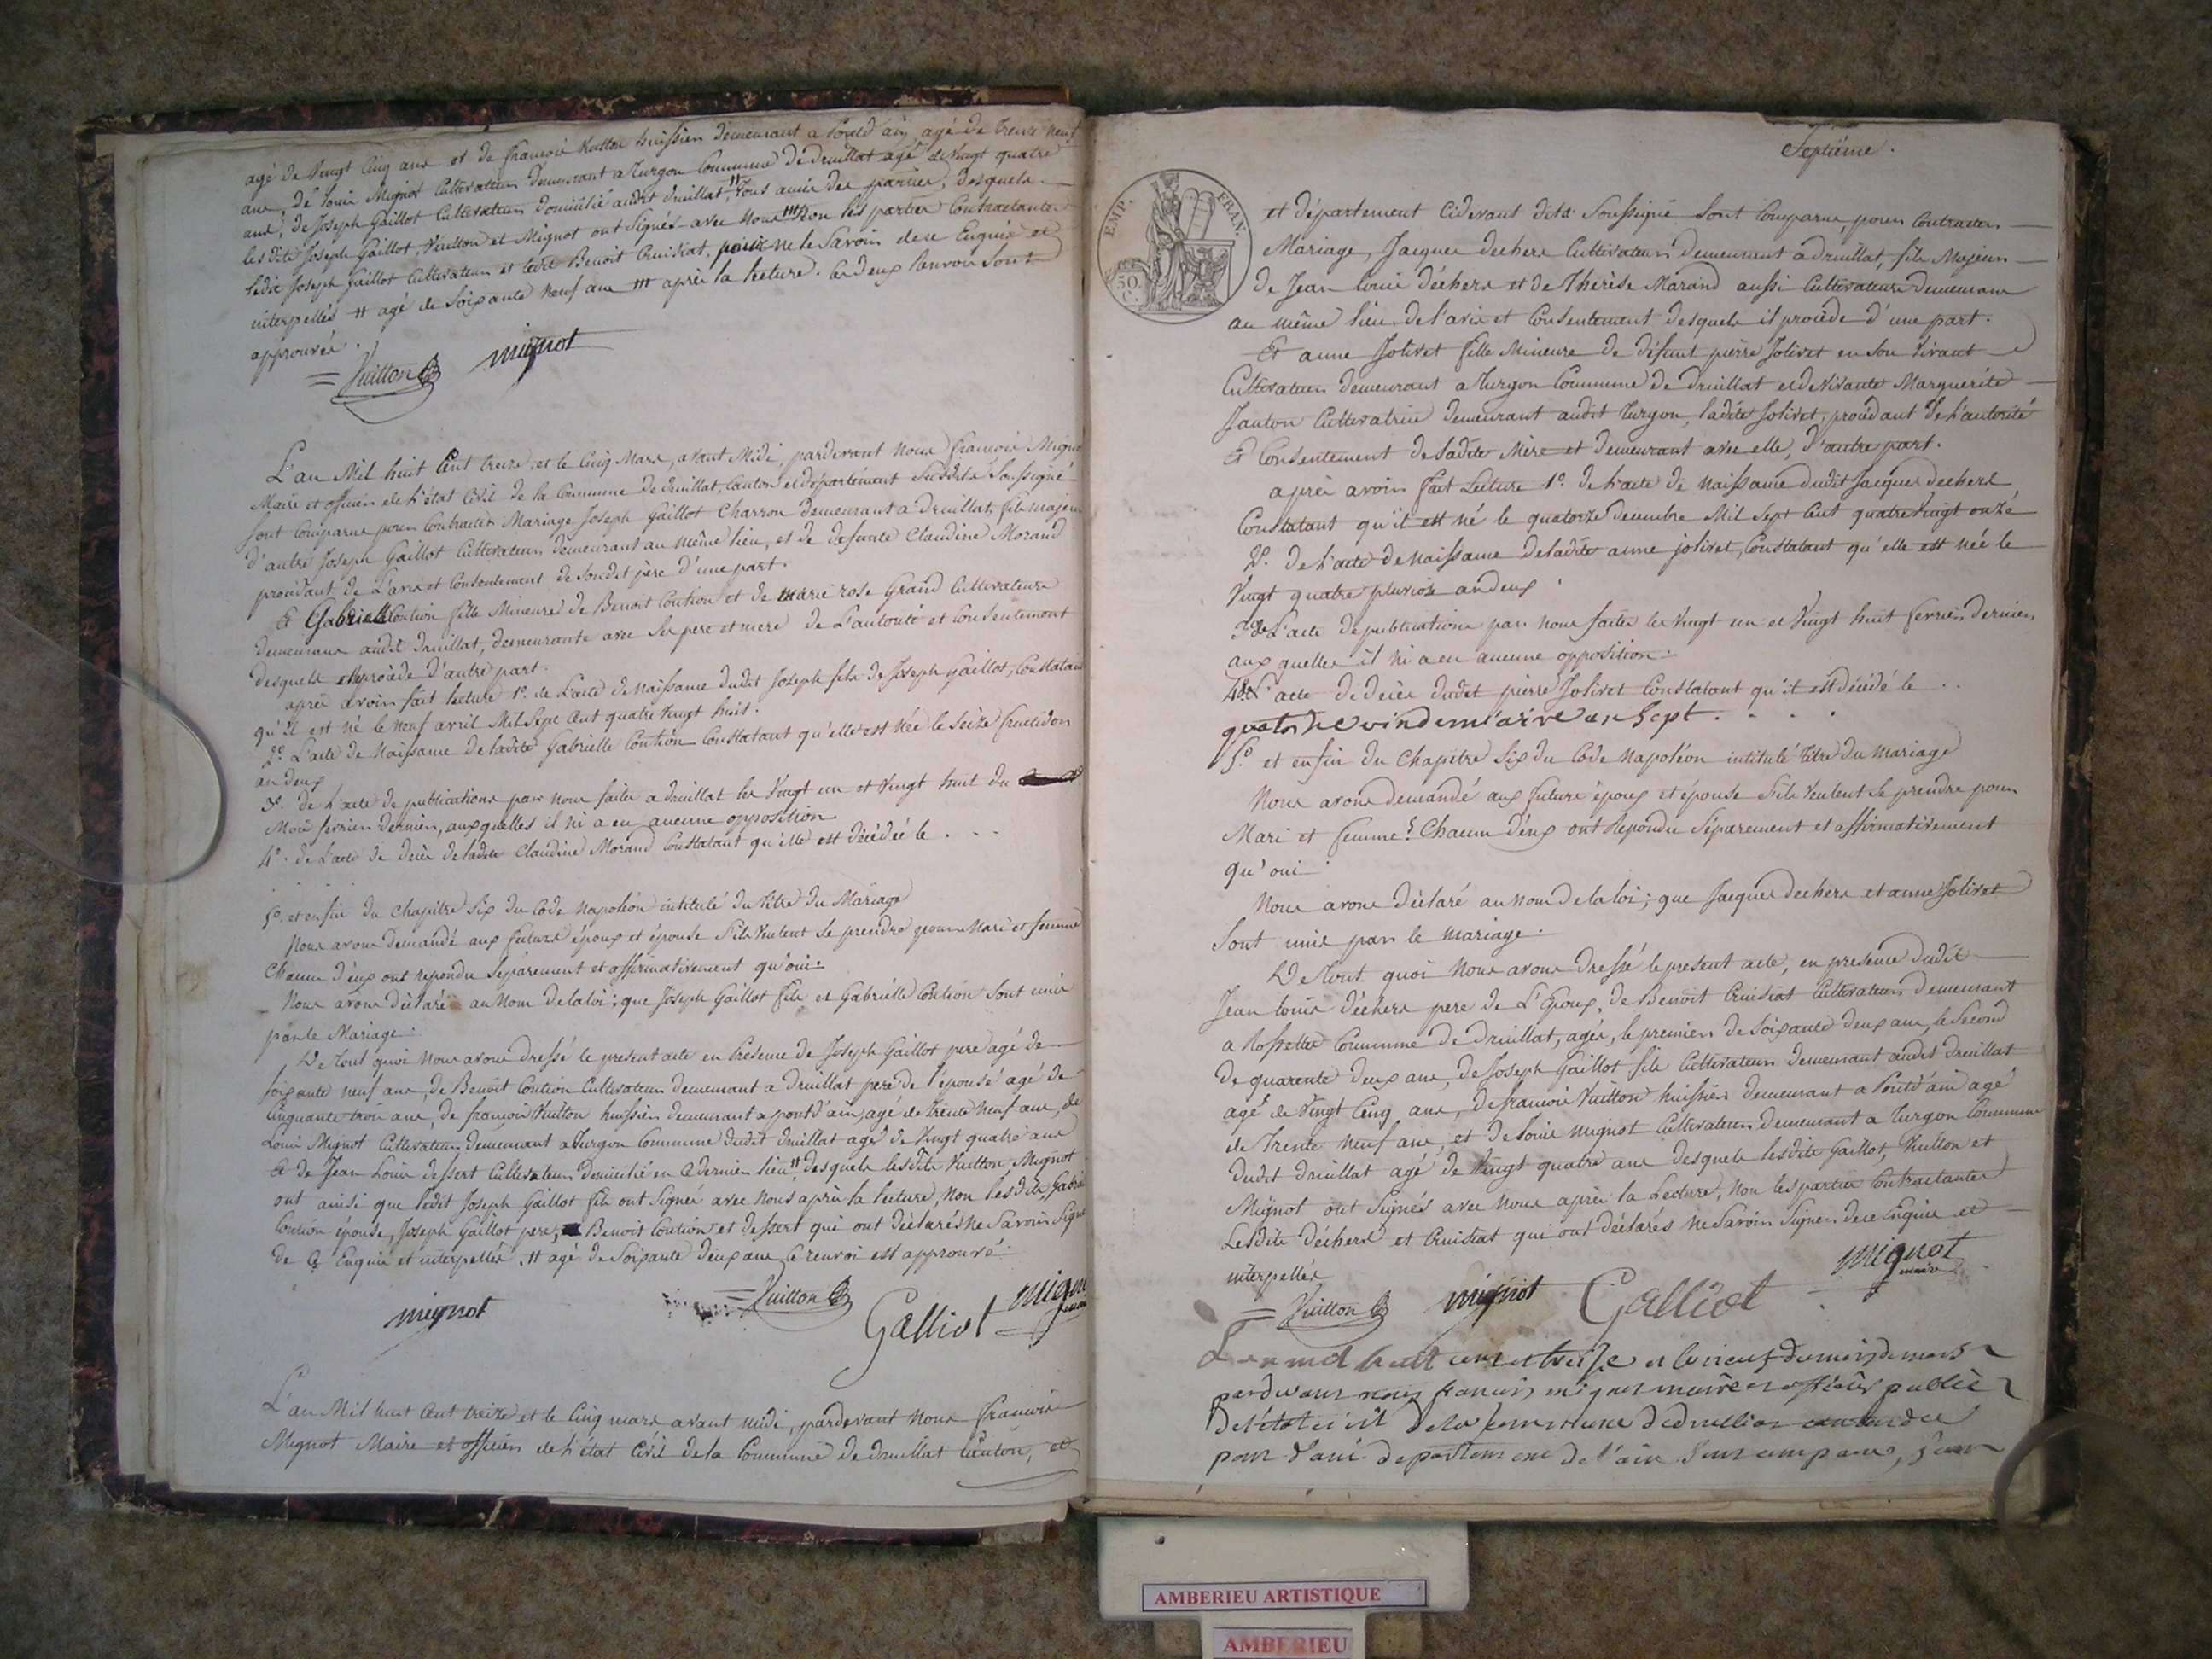 agé de vingt cinq ans et de françois Vuitton huissier demeurant a Pontd'ain, agé de trente neuf
ans, de Louis Mignot Cultivateur demeurant a Turgon Commune de druillat agé de vingt quatre
ans, de Joseph Gaillot Cultivateur domicilié audit druillat, # tous amis des parties, desquels
lesdits Joseph Gaillot, Vuitton et Mignot ont Signés avec nous ### non les parties Contractantes
ledit Joseph Gaillot Cultivateur et ledit Benoit Cruisiat, pour ne le Savoir de ce Enquis et
interpellés # agé de Soixante neuf ans ### après la lecture. les deux Renvois Sont
approuvés.
Vuitton mignot
L'an Mil huit Cent treize et le Cinq Mars, avant Midi, pardevant Nous françois Migno
Maire et officier de l'état Civil de la Commune de druillat, Canton et département Susdits Soussigné
Sont Comparus pour Contracter Mariage Joseph Gaillot Charron demeurant a druillat, fils majeur
d'autre Joseph Gaillot Cultivateur demeurant au même lieu, et de defunte Claudine Morand
procédant de L'avis et Consentement de Sondit père d'une part.
Et Gabrielle Coution fille Mineure de Benoit Coution et de Marie rose Grand Cultivateurs
demeurans audit druillat, demeurante avec Ses pere et mere de L'autorité et Consentement
desquels elle procède d'autre part.
après avoir fait lecture 1º. de L'acte de Naissance dudit Joseph fils de Joseph Gaillot, Constatant
qu'il est né le neuf avril Mil Sept Cent quatre vingt huit.
2º. L'acte de Naissance de ladite Gabrielle Coution Constatant qu'elle est née le Seize fructidor
an deux
3º. de L'acte de publications par nous faites a druillat les Vingt un et Vingt huit du
Mois fevrier dernier, auxquelles il ni a eu aucune opposition
4º. de L'acte de décès de ladite Claudine Morand Constatant qu'elle est décédée le . . .
5º. et enfin du Chapitre Six du Code Napoléon intitulé du titre du Mariage
Nous avons demandé aux futurs époux et épouse S'ils Veulent Se prendre pour Mari et femme
Chacun d'eux ont repondu Séparement et affirmativement qu'oui.
Nous avons déclaré au Nom de la loi ; que Joseph Gaillot fils et Gabrielle Coution Sont unis
par le Mariage.
De tout quoi Nous avons dressé le present acte en Présence de Joseph Gaillot pere agé de
Soixante neuf ans, de Benoit Coution Cultivateur demeurant a druillat pere de l'épouse agé de
Cinquante trois ans, de françois Vuitton huissier demeurant a pontd'ain, agé de trente neuf ans, de
Louis Mignot Cultivateur demeurant a Turgon Commune dudit druillat agé de Vingt quatre ans
Et de Jean Louis dessert Cultivateur domicilié en Ce dernier lieu # desquels lesdits Vuitton Mignot
ont ainsi que ledit Joseph Gaillot fils ont Signés avec nous après la lecture, Non lesdits Gabrielle
Coution épouse, Joseph Gaillot pere, Benoit Coution et dessert qui ont déclarés ne Savoir Signer
de Ce Enquis et interpellés. # agé de Soixante deux ans Ce renvoi est approuvé.
mignot Vuitton Galliot mign
L'an Mil huit Cent treize et le Cinq mars avant midi, pardevant Nous françois
Mignot Maire et officier de l'état Civil de la Commune de druillat Canton, et
Septième.
EMP. FRAN.
50. C.
et département Cidevant dits Soussigné Sont Comparus, pour Contracter
Mariage, Jacques dechere Cultivateur demeurant a druillat, fils Majeur
de Jean louis déchere et de Thérèse Marand aussi Cultivateurs demeurans
au même lieu, de l'avis et Consentement desquels il procède d'une part.
Et anne Jolivet fille Mineure de défunt pierre Jolivet en Son Vivant
Cultivateur demeurant a Turgon Commune de druillat et de Vivante Marguerite
Janton Cultivatrice demeurant audit Turgon, ladite Jolivet, procédant de L'autorité
Et Consentement de Sadite Mère et demeurant avec elle, d'autre part.
après avoir fait Lecture 1º. de L'acte de Naissance dudit Jacques dechere
Constatant qu'il est né le quatorze decembre Mil Sept Cent quatre Vingt onze
2º. de L'acte de Naissance de ladite anne jolivet, Constatant qu'elle est née le
Vingt quatre pluviose an deux.
3º de L'acte de publications par nous faites les Vingt un et Vingt huit fevrier dernier
aux quelles il ni a eu aucune opposition.
4º de L'acte de décès dudit pierre Jolivet Constatant qu'il est décédé le . .
quatorze vindemiaire an Sept. . . .
5º. et enfin du Chapitre Six du Code Napoléon intitulé titre du mariage
Nous avons demandé aux futurs époux et épouse S'ils Veulent Se prendre pour
Mari et femme ? Chacun d'eux ont Repondu Séparement et affirmativement
qu'oui
Nous avons déclaré au nom de la loi ; que Jacques dechere et anne Jolivet
Sont unis par le mariage.
De tout quoi Nous avons dressé le present acte, en presence dudit
Jean louis déchere pere de L'Epoux, de Benoit Cruisiat Cultivateur demeurant
a Rossettes Commune de druillat, agés, le premier de Soixante deux ans, le Second
de quarente deux ans, de Joseph Gaillot fils Cultivateur demeurant audit druillat
agé de Vingt Cinq ans, de françois Vuitton huissier demeurant a Pontd'ain agé
de Trente neuf ans, et de Louis mignot Cultivateur demeurant a Turgon Commune
dudit druillat agé de Vingt quatre ans desquels lesdits Gaillot, Vuitton et
Mignot ont Signés avec Nous après la Lecture, Non les parties Contractantes
Lesdits déchere et Cruisiat qui ont déclarés ne Savoir Signer de ce Enquis et
interpellés
Vuitton mignot Galliot mignot maire
L'an mil huit cent et treize et le neuf du mois de mars
pardevant nous francois mignot maire et officier public
de l'état civil de la commune de druillat canton de
pont d'ain departement de l'ain Sont comparus, jean
AMBERIEU ARTISTIQUE
AMBERIEU